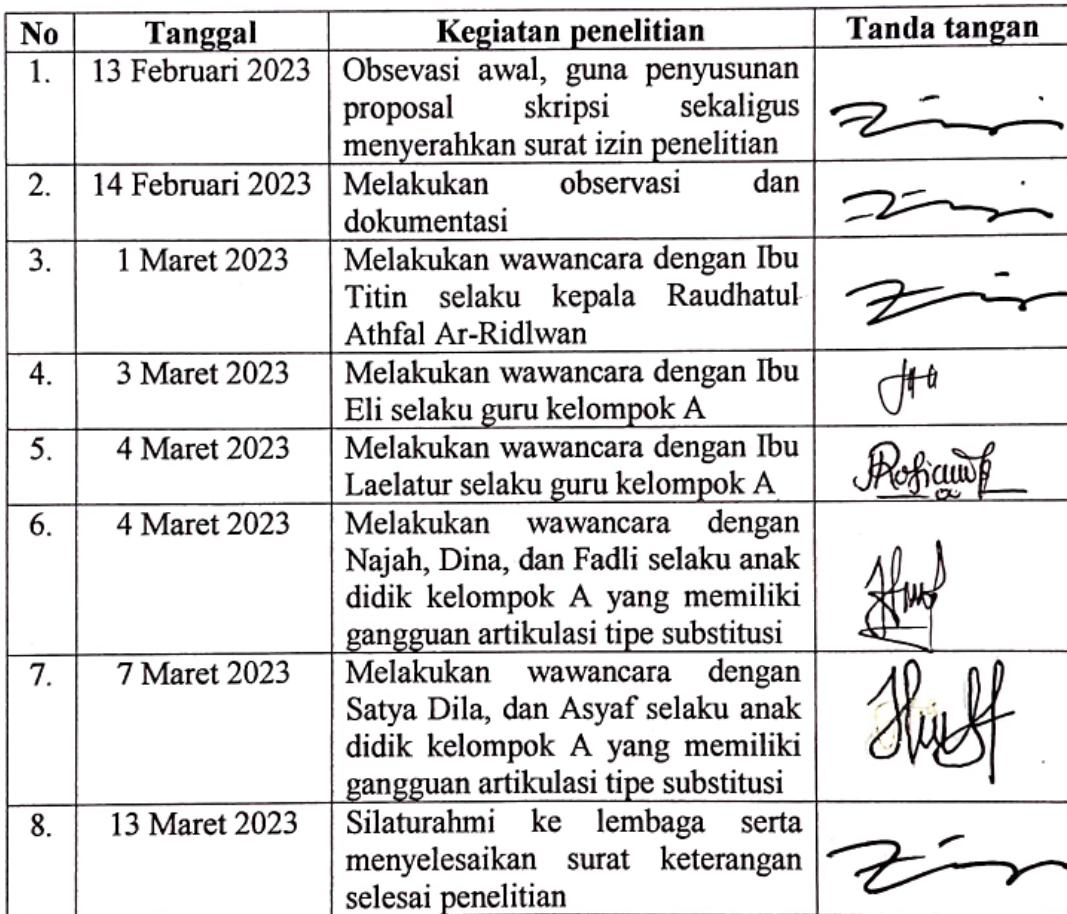 No Tanggal Kegiatan penelitian Tanda tangan
1. 13 Februari 2023 Obsevasi awal, guna penyusunan
proposal skripsi sekaligus
menyerahkan surat izin penelitian
2. 14 Februari 2023 Melakukan observasi dan
dokumentasi
3. 1 Maret 2023 Melakukan wawancara dengan Ibu
Titin selaku kepala Raudhatul
Athfal Ar-Ridlwan
4. 3 Maret 2023 Melakukan wawancara dengan Ibu
Eli selaku guru kelompok A
5. 4 Maret 2023 Melakukan wawancara dengan Ibu
Laelatur selaku guru kelompok A
6. 4 Maret 2023 Melakukan wawancara dengan
Najah, Dina, dan Fadli selaku anak
didik kelompok A yang memiliki
gangguan artikulasi tipe substitusi
7. 7 Maret 2023 Melakukan wawancara dengan
Satya Dila, dan Asyaf selaku anak
didik kelompok A yang memiliki
gangguan artikulasi tipe substitusi
8. 13 Maret 2023 Silaturahmi ke lembaga serta
menyelesaikan surat keterangan
selesai penelitian